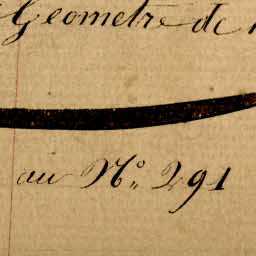 Geometre de
au N° 291